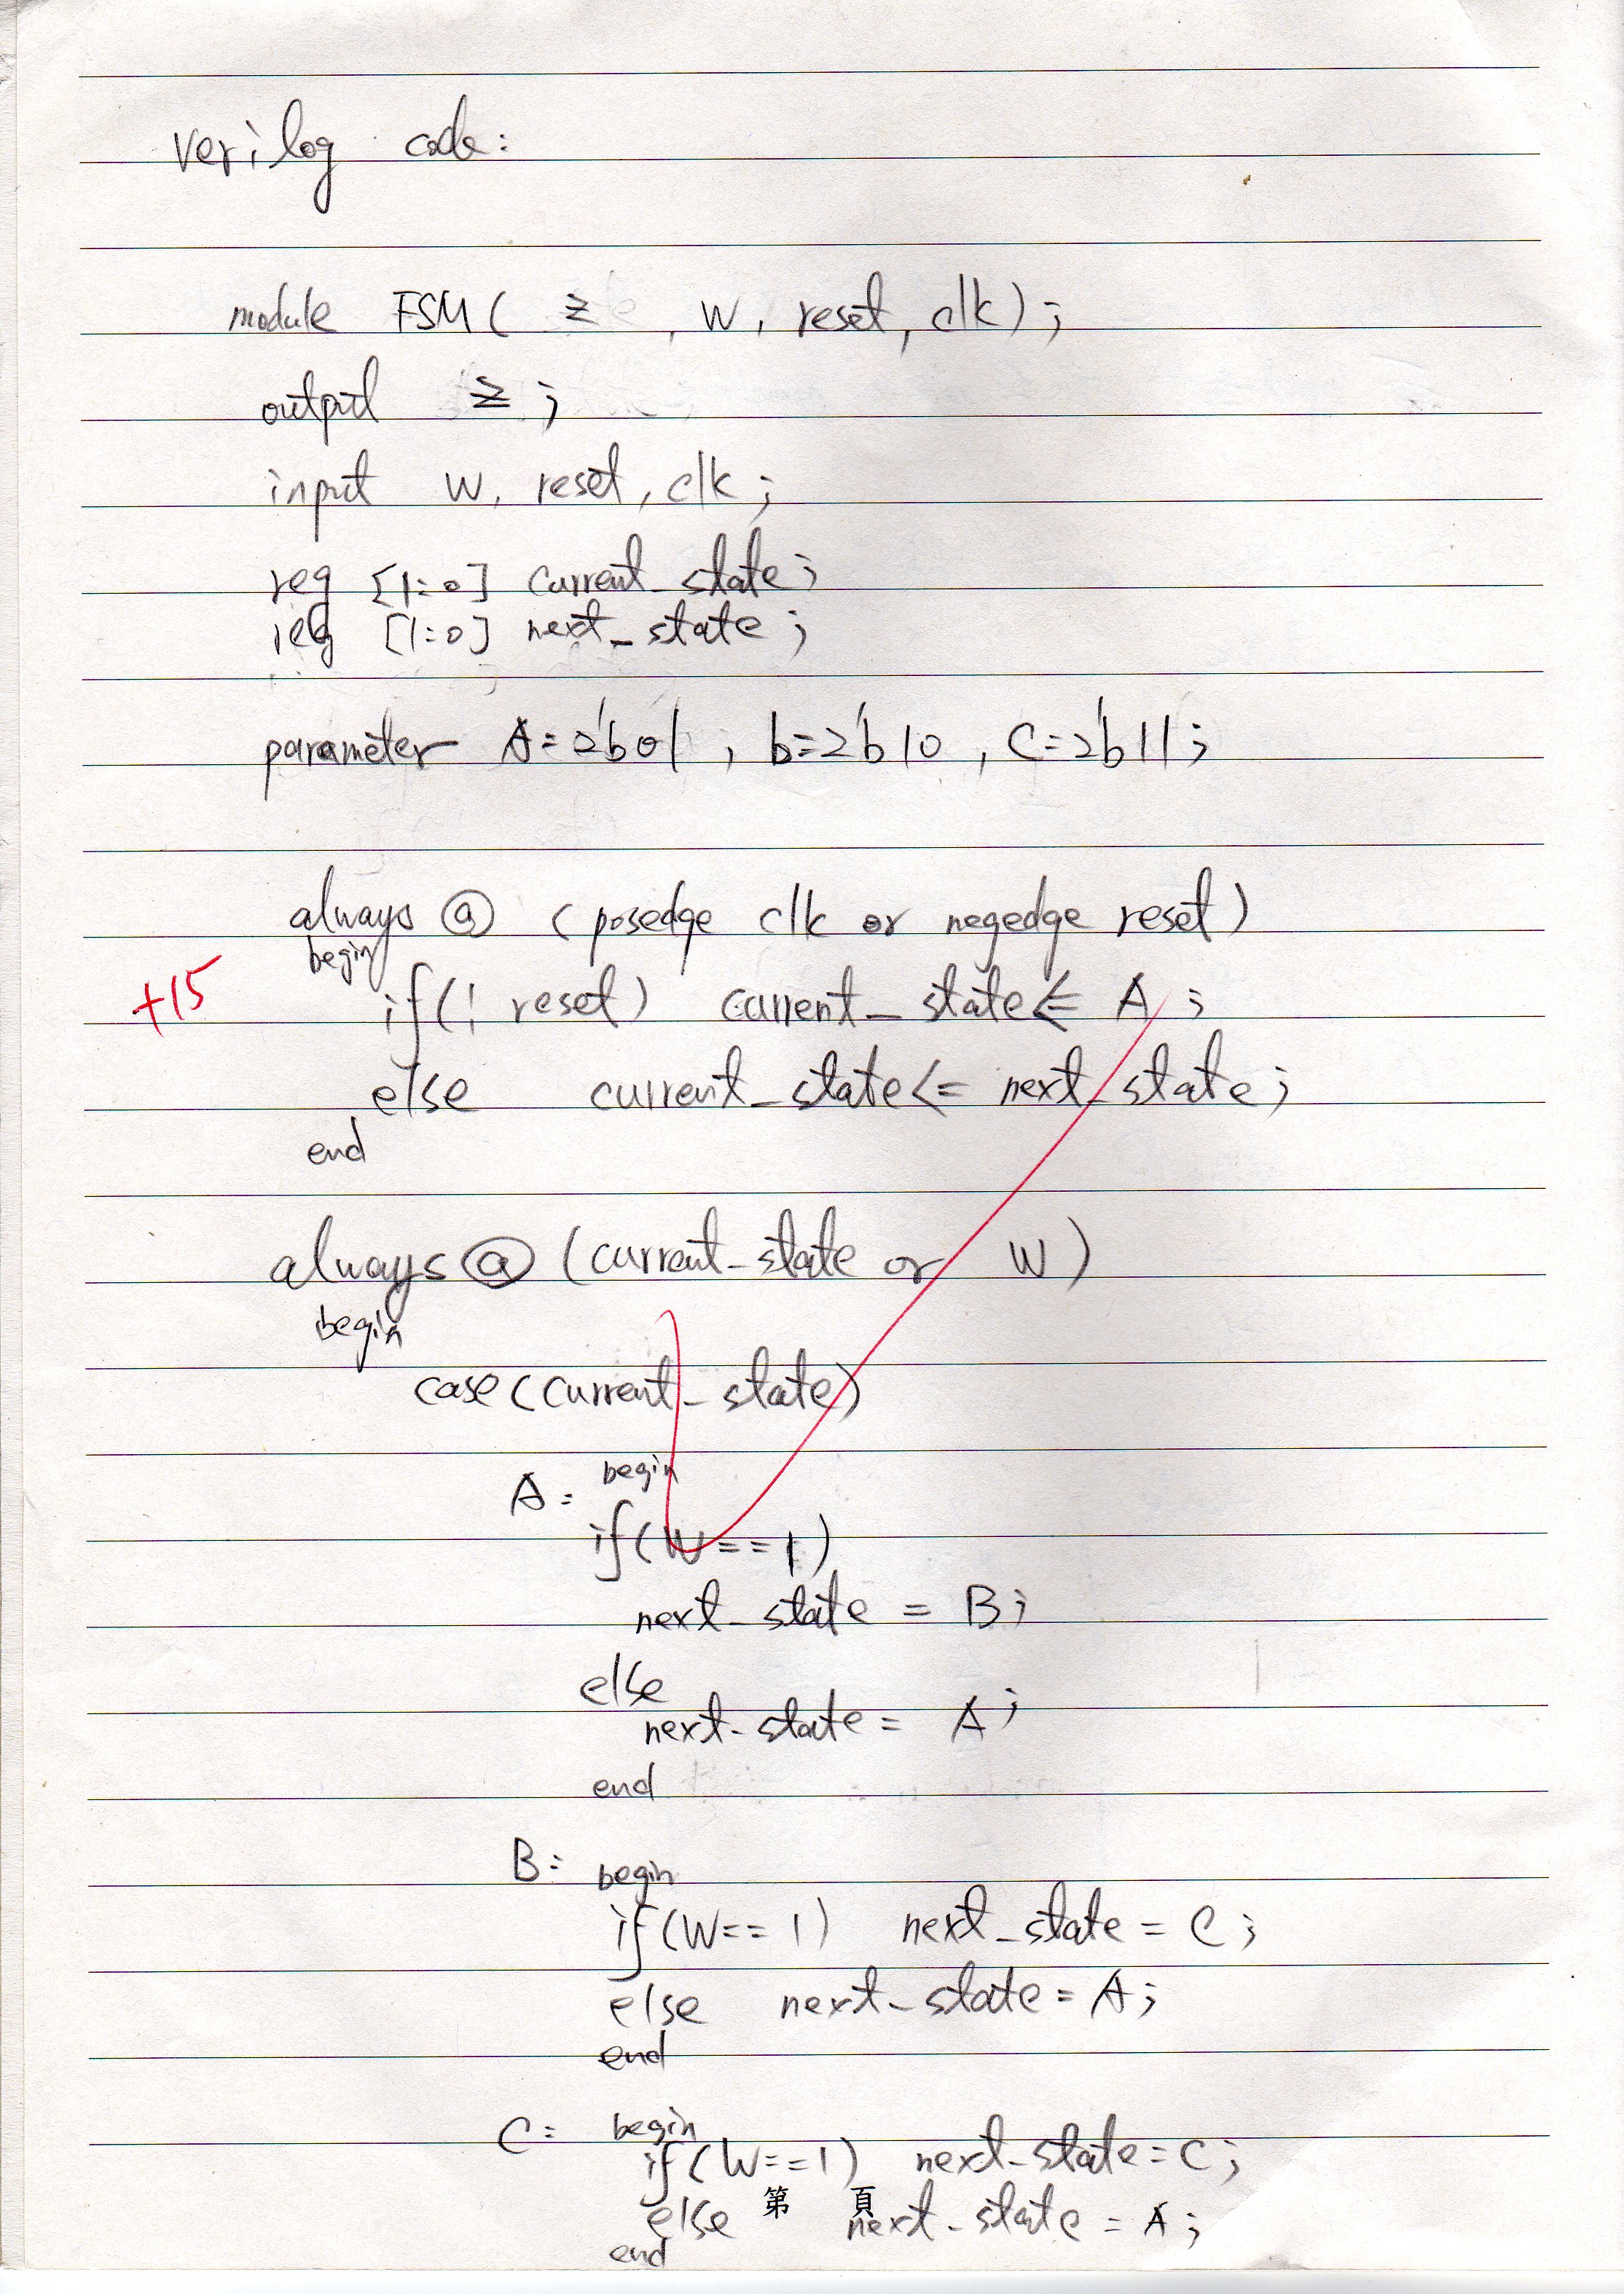 verilog code:
module FSM( z , w, reset, clk);
output z ;
input w, reset, clk ;
reg [1:0] current_state;
reg [1:0] next_state ;
parameter A=2'b01 , b=2'b10 , C=2'b11 ;
always @ (posedge clk or negedge reset)
begin
+15
if(! reset) current_state<= A ;
else current_state<= next_state;
end
always @ (current_state or w)
begin
case(current_state)
A: begin
if(w==1)
next_state = B;
else
next_state = A;
end
B: begin
if(w==1) next_state = C;
else next_state = A;
end
C: begin
if(w==1) next_state=C;
else next_state = A;
第 頁
end